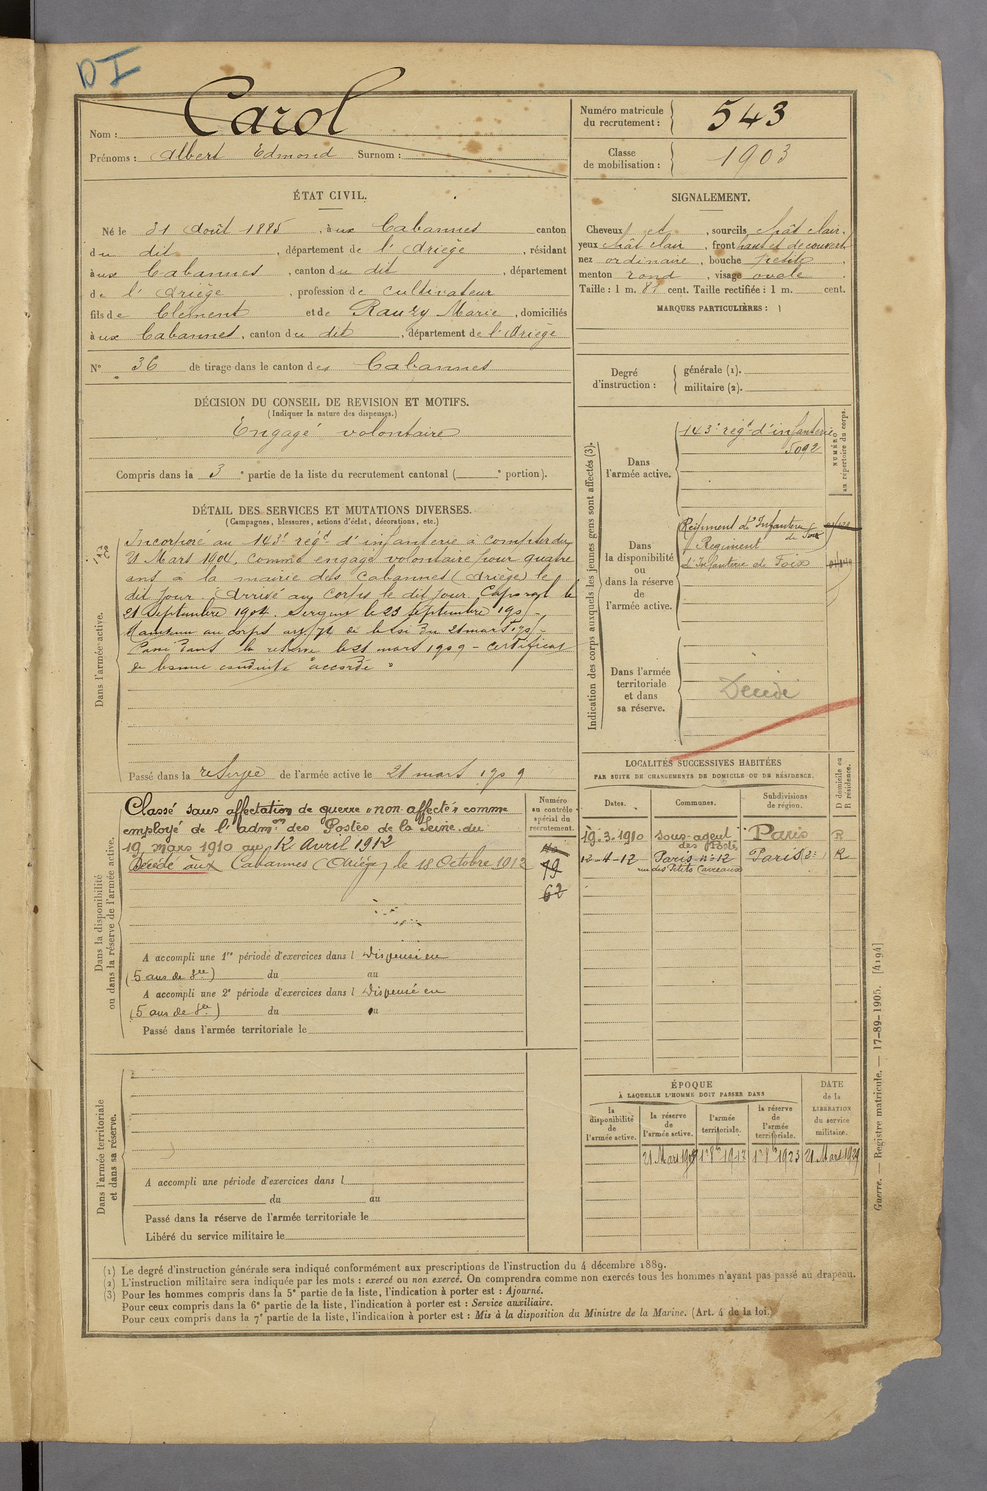 DI
Nom : Carol
Prénoms : Albert Edmond Surnom :
Numéro matricule
du recrutement : 543
Classe
de mobilisation : 1903
ÉTAT CIVIL.
Né le 31 Août 1885, à ux Cabannes canton
du dit, département de l'Ariège, résidant
à ux Cabannes, canton du dit, département
de l'Ariège, profession de cultivateur
fils de Clément et de Rauzy Marie, domiciliés
à ux Cabannes, canton du dit, département de l'Ariège
N° 36 de tirage dans le canton des Cabannes
SIGNALEMENT.
Cheveux et, sourcils chât clair,
yeux chât clair, front haut et découvert
nez ordinaire, bouche petite,
menton rond, visage ovale
Taille : 1 m. 81 cent. Taille rectifiée : 1 m. cent.
MARQUES PARTICULIÈRES :
DÉCISION DU CONSEIL DE REVISION ET MOTIFS.
(Indiquer la nature des dispenses.)
Engagé volontaire
Compris dans la 3e partie de la liste du recrutement cantonal ( e portion).
Degré
d'instruction :
générale (1).
militaire (2).
DÉTAIL DES SERVICES ET MUTATIONS DIVERSES.
(Campagnes, blessures, actions d'éclat, décorations, etc.)
Dans l'armée active.
Incorporé au 143e régt d'infanterie à compter du
21 Mars 1904, comme engagé volontaire pour quatre
ans à la mairie des Cabannes (Ariège) le
dit jour. Arrivé au corps le dit jour. Caporal le
21 septembre 1904. Sergent le 23 septembre 190
Maintenu au corps de la loi du 21 mars
Passé dans la réserve le 21 mars 1909 - certificat
de bonne conduite "accordé"
Passé dans la réserve de l'armée active le 21 mars 1909
Indication des corps auxquels les jeunes gens sont affectés (3).
NUMÉRO
au répertoire du corps.
Dans
l'armée active.
143e régt d'infanterie
5092
Dans
la disponibilité
ou
dans la réserve
de
l'armée active.
Régiment d'Infanterie
de Foix
Régiment
d'Infanterie de Foix
Dans l'armée
territoriale
et dans
sa réserve.
Décédé
Dans la disponibilité
ou dans la réserve de l'armée active.
Classé sans affectation de guerre "non affecté" comme
employé de l'admon des Postes de la Seine, du
19 mars 1910 au 12 Avril 1912
Décédé aux Cabannes (Ariège) le 18 Octobre 1912
Numéro
au contrôle
spécial du
recrutement.
79
62
A accompli une 1re période d'exercices dans l Dispensé en
(5 ans de sce) du au
A accompli une 2e période d'exercices dans l Dispensé en
(5 ans de sce) du au
Passé dans l'armée territoriale le
LOCALITÉS SUCCESSIVES HABITÉES
PAR SUITE DE CHANGEMENTS DE DOMICILE OU DE RÉSIDENCE.
D domicile ou
R résidence.
Dates. Communes. Subdivisions
de région.
19.3.1910 sous-agent Paris R
des Postes
12-4-12 Paris n° 12 Paris (3e) R
rue des Petits Carreaux
Dans l'armée territoriale
et dans sa réserve.
A accompli une période d'exercices dans l
du au
Passé dans la réserve de l'armée territoriale le
Libéré du service militaire le
ÉPOQUE
À LAQUELLE L'HOMME DOIT PASSER DANS
la
disponibilité
de
l'armée active.
la réserve
de
l'armée active.
l'armée
territoriale.
la réserve
de
l'armée
territoriale.
DATE
de la
LIBÉRATION
du service
militaire.
21 Mars 1909 1er 8bre 1923 21 Mars 1929
Guerre. — Registre matricule. — 17-89-1905. [4194]
(1) Le degré d'instruction générale sera indiqué conformément aux prescriptions de l'instruction du 4 décembre 1889.
(2) L'instruction militaire sera indiquée par les mots : exercé ou non exercé. On comprendra comme non exercés tous les hommes n'ayant pas passé au drapeau.
(3) Pour les hommes compris dans la 5e partie de la liste, l'indication à porter est : Ajourné.
Pour ceux compris dans la 6e partie de la liste, l'indication à porter est : Service auxiliaire.
Pour ceux compris dans la 7e partie de la liste, l'indication à porter est : Mis à la disposition du Ministre de la Marine. (Art. 4 de la loi.)